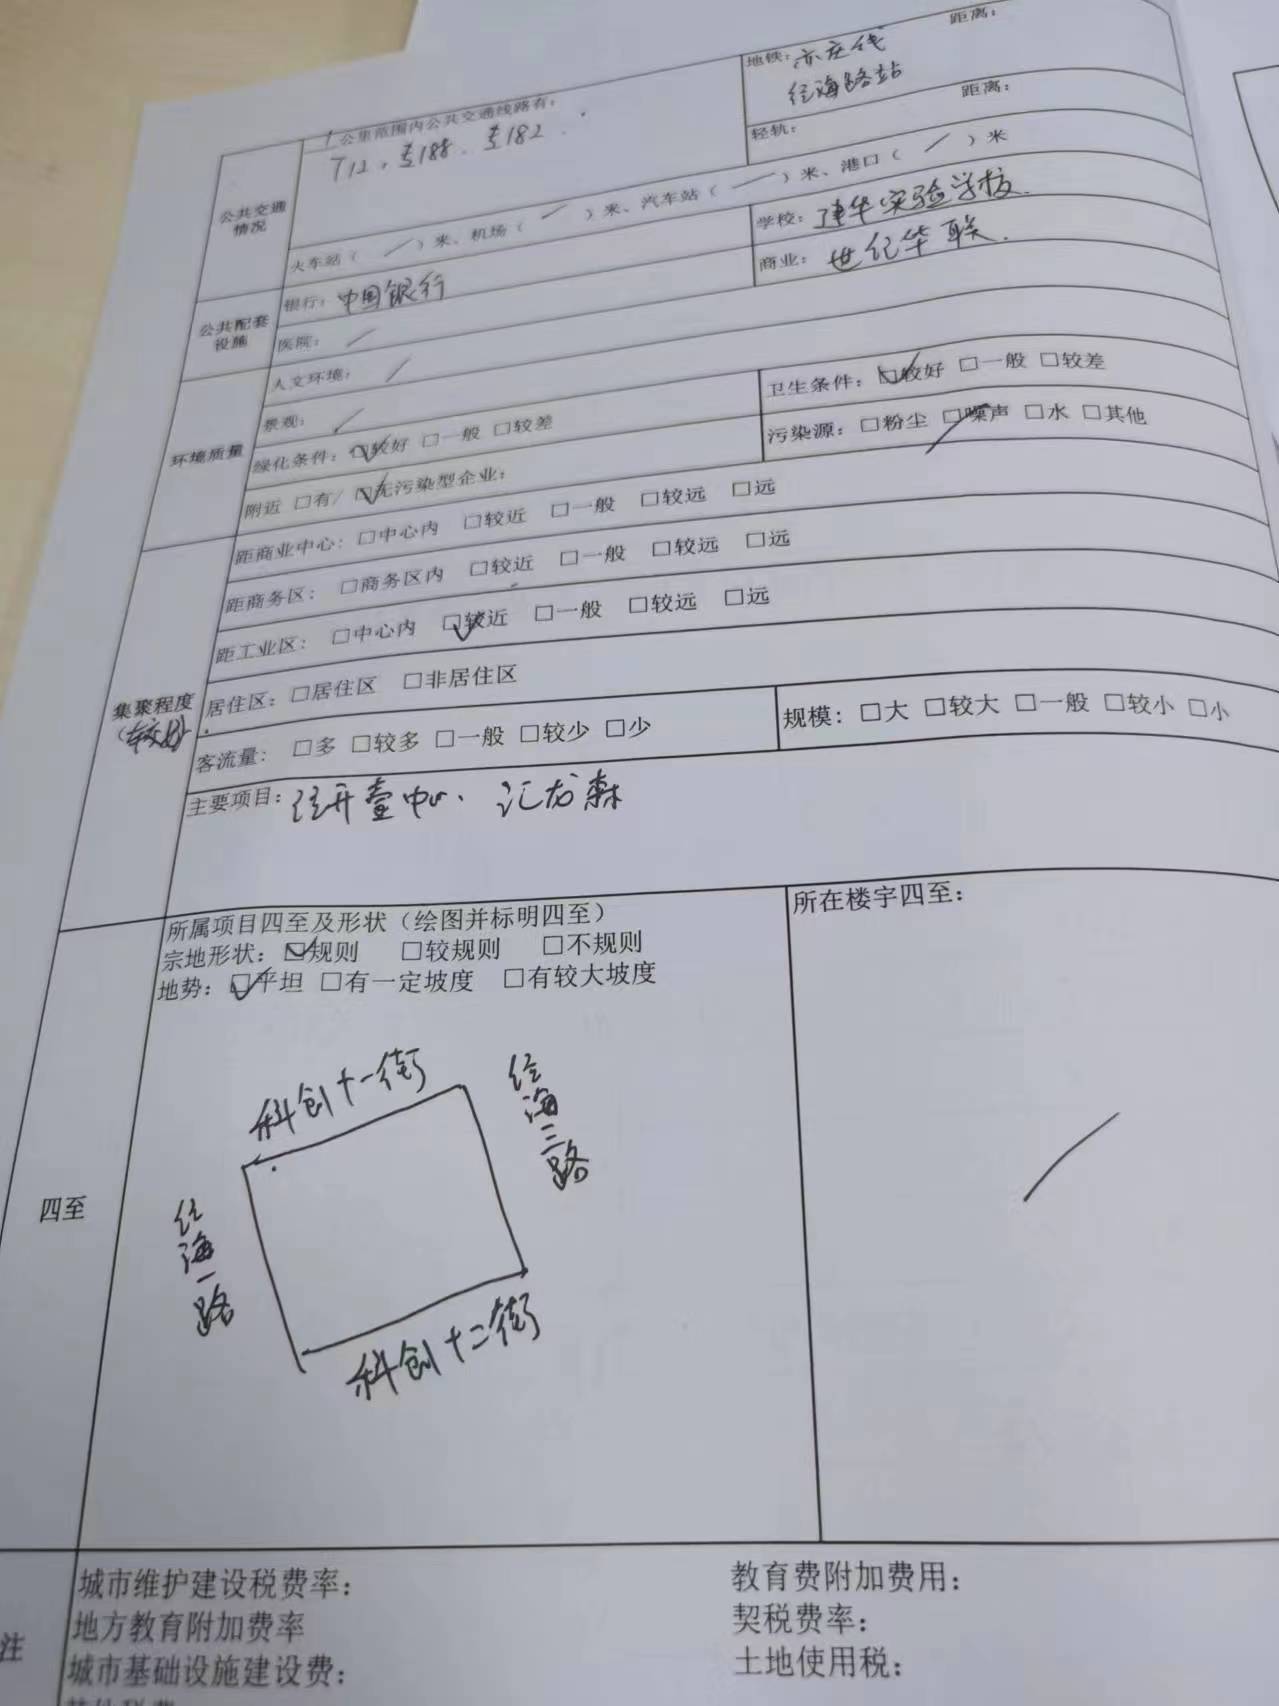 1公里范围内公共交通线路有：
T12、专188、专182
地铁：亦庄线 距离：
经海路站
轻轨： 距离：
公共交通情况
火车站（ ／ ）米、机场（ ／ ）米、汽车站（ ／ ）米、港口（ ／ ）米
公共配套设施
银行：中国银行
学校：建华实验学校
医院：／
商业：世纪华联
环境质量
人文环境：／
景观：／
卫生条件：☑较好 □一般 □较差
绿化条件：☑较好 □一般 □较差
污染源：□粉尘 ☑噪声 □水 □其他
附近 □有/ ☑无污染型企业：
集聚程度
（较好）
距商业中心：□中心内 □较近 □一般 □较远 □远
距商务区：□商务区内 □较近 □一般 □较远 □远
距工业区：□中心内 ☑较近 □一般 □较远 □远
居住区：□居住区 □非居住区
客流量：□多 □较多 □一般 □较少 □少
规模：□大 □较大 □一般 □较小 □小
主要项目：经开壹中心、汇龙森
四至
所属项目四至及形状（绘图并标明四至）
宗地形状：☑规则 □较规则 □不规则
地势：☑平坦 □有一定坡度 □有较大坡度
所在楼宇四至：
／
科创十一街
经海三路
经海一路
科创十二街
注
城市维护建设税费率：
教育费附加费用：
地方教育附加费率
契税费率：
城市基础设施建设费：
土地使用税：